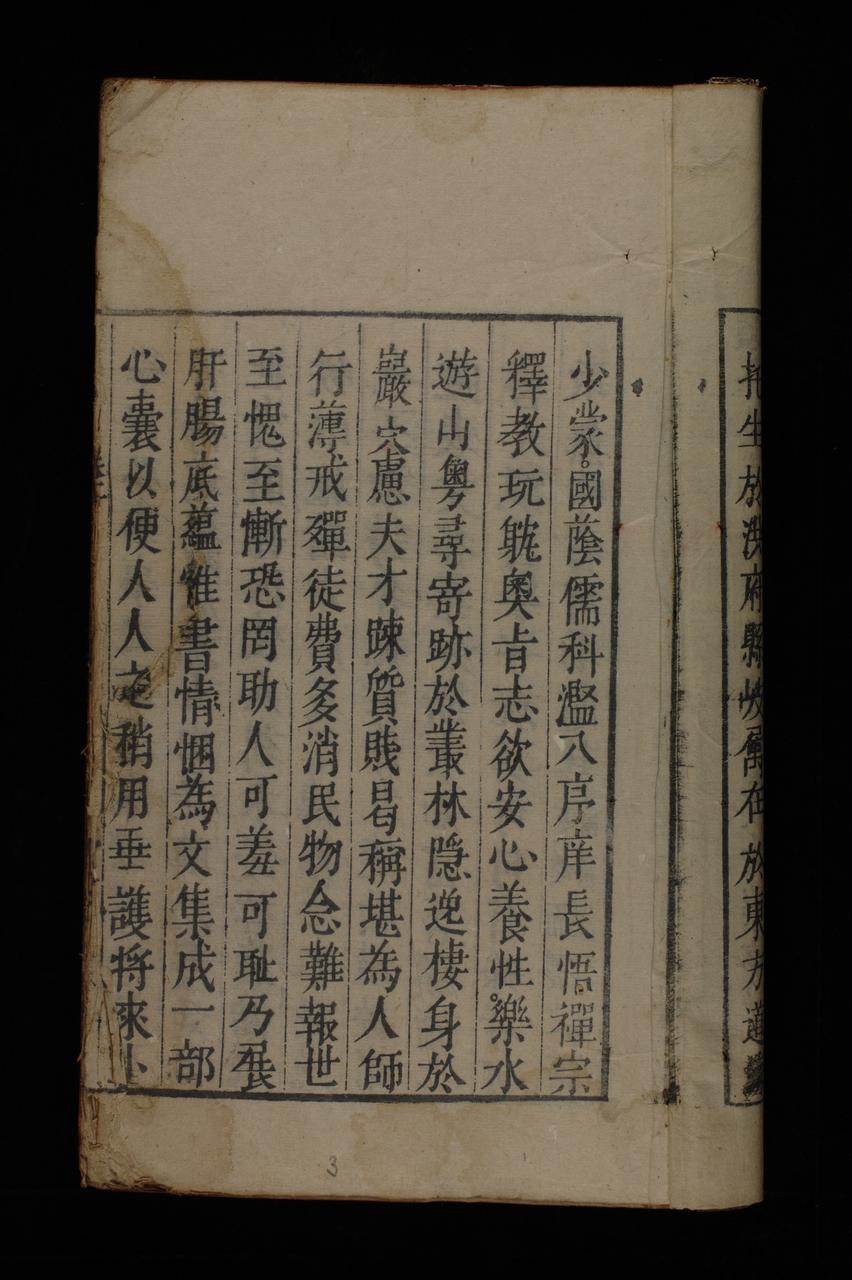 托生於洪府縣
在於東方
少蒙國蔭儒科濫入序庠長悟禪宗
釋教玩耽奥旨志欲安心養性樂水
遊山粤尋寄跡於叢林隐逸棲身於
巖穴慮夫才踈質賎曷稱堪為人師
行薄戒殫徒費多消民物念難報世
至愧至慚恐罔助人可羞可耻乃展
肝腸底蘊惟書情悃為文集成一部
心囊以便人人之稍用垂護将來小
3